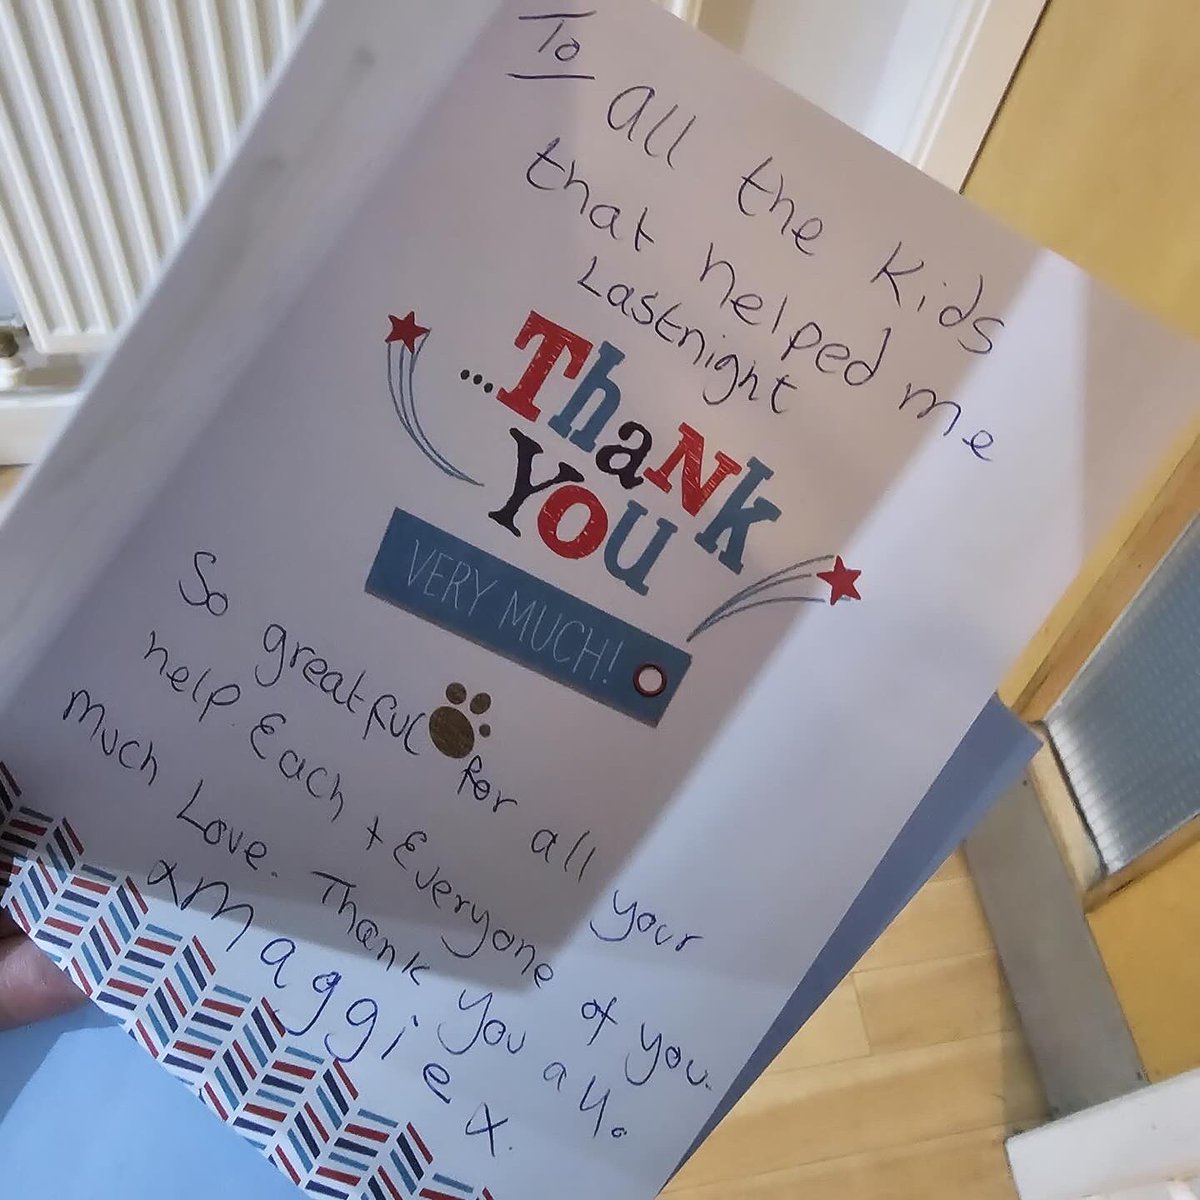 To
All the Kids
that helped me
Lastnight
...Thank
You
VERY MUCH!
So greatful for all your
help Each + Everyone of you.
Much Love. Thank you all.
x Maggie x.